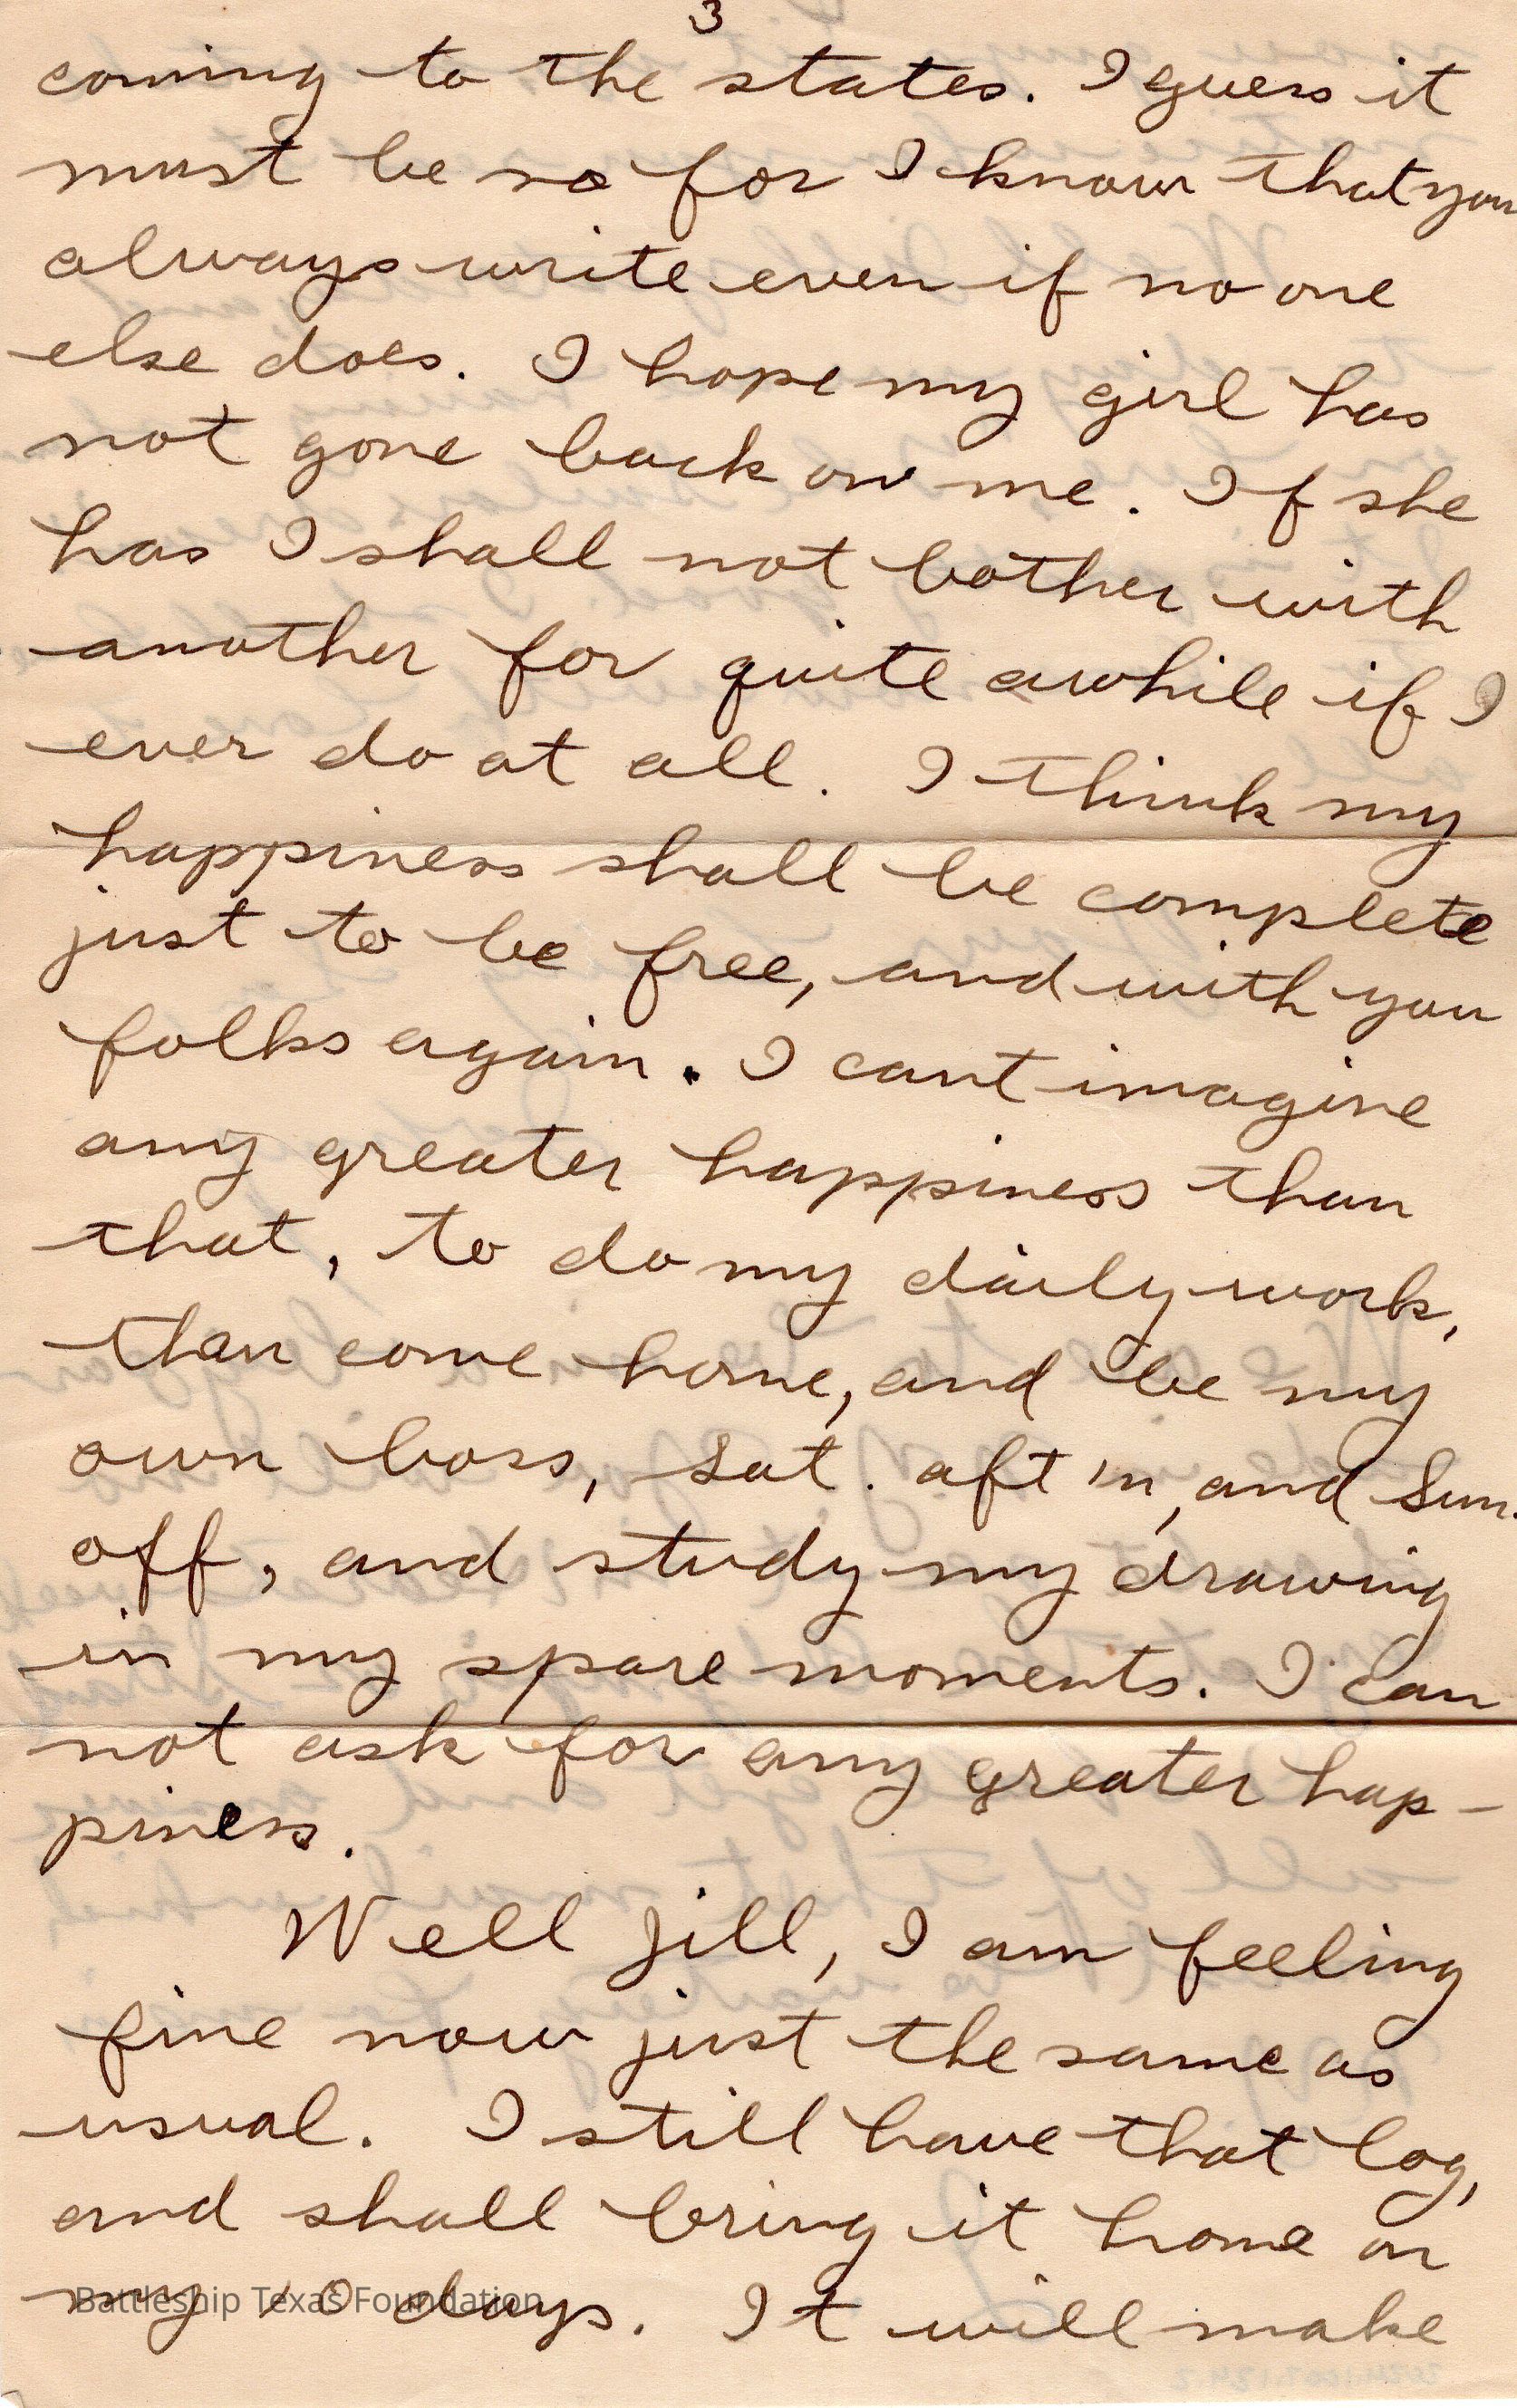 3
coming to the states. I guess it
must be so for I know that you
always write even if no one
else does. I hope my girl has
not gone back on me. If she
has I shall not bother with
another for quite awhile if I
ever do at all. I think my
happiness shall be complete
just to be free, and with you
folks again. I cant imagine
any greater happiness than
that, to do my daily work,
than come home, and be my
own boss, Sat. aft'n, and Sun.
off, and study my drawing
in my spare moments. I can
not ask for any greater hap-
piness.
Well Jill, I am feeling
fine now just the same as
usual. I still have that log,
and shall bring it home on
my 10 days. It will make
Battleship Texas Foundation